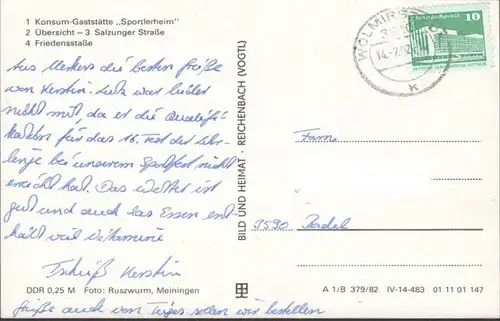 1 Konsum-Gaststätte „Sportlerheim"
2 Übersicht – 3 Salzunger Straße
4 Friedensstaße
Aus Merkers die besten Grüße
von Kerstin. Lutz war leider
nicht mit, da er die Qualifi-
kation für das 16. Fest der
bei unserem Sportfest nicht
erreicht hat. Das Wetter ist
gut und auch das Essen ent-
hält viel Vitamine
Tschüß Kerstin
DDR 0,25 M Foto: Ruszwurm, Meiningen
Grüße auch von sollen wir bestellen
BILD UND HEIMAT · REICHENBACH (VOGTL)
WOLMIRS
k
10
Fam.
3590
A 1/B 379/82 IV-14-483 01 11 01 147